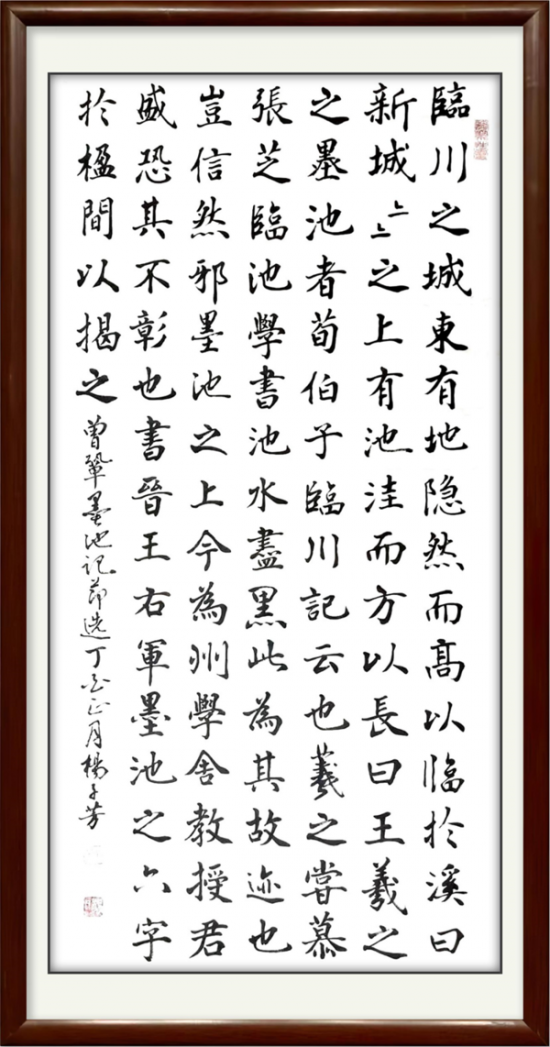 臨川之城東有地隐然而髙以臨於溪曰
新城〻〻之上有池洼而方以長曰王羲之
之墨池者荀伯子臨川記云也羲之嘗慕
張芝臨池學書池水盡黑此為其故迹也
豈信然邪墨池之上今為州學舍教授君
盛恐其不彰也書晉王右軍墨池之六字
於楹間以揭之
曾鞏墨池记节选丁酉正月楊子芳